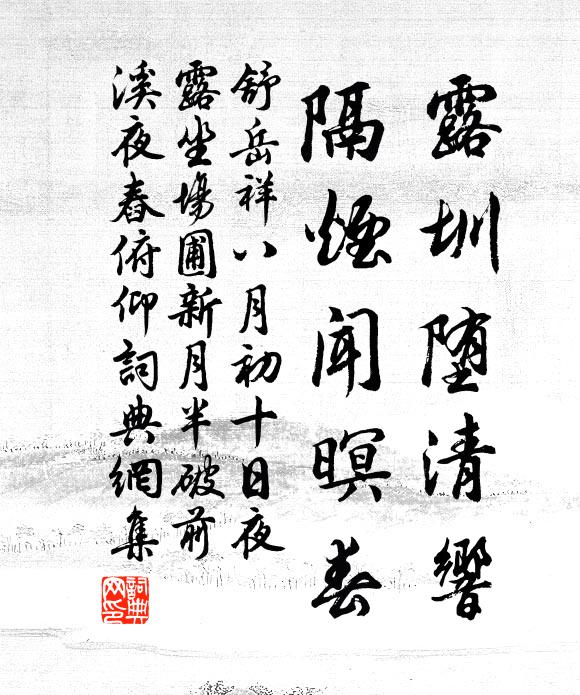 露圳堕清響
隔煙聞暝舂
舒岳祥八月初十日夜
露坐場圃新月半破前
溪夜舂俯仰詞典網集
詞典
网印